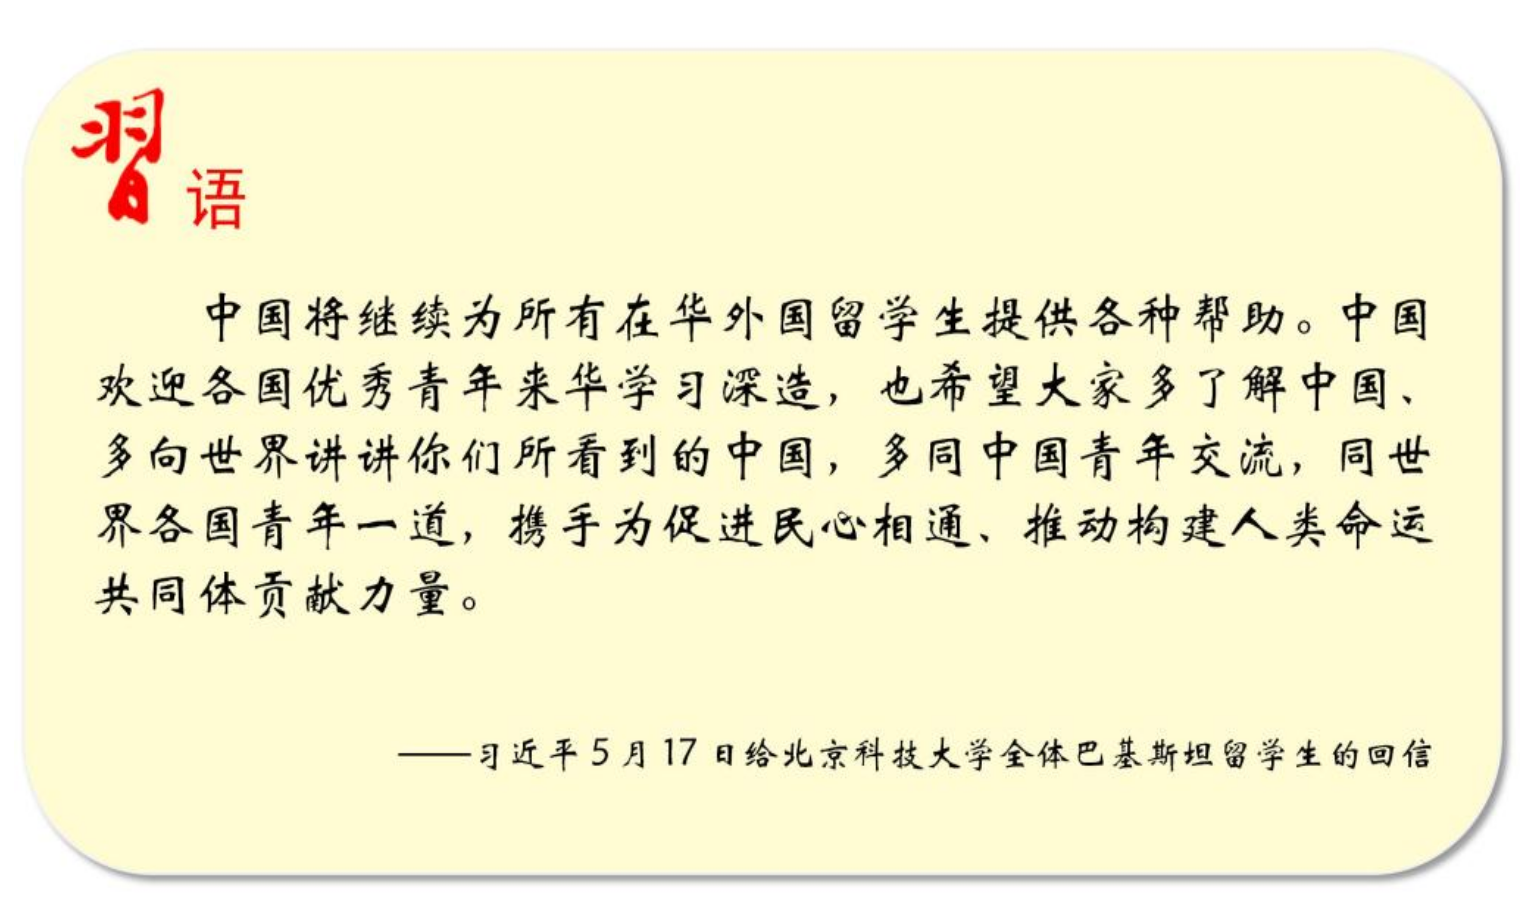 習语
中国将继续为所有在华外国留学生提供各种帮助。中国
欢迎各国优秀青年来华学习深造，也希望大家多了解中国、
多向世界讲讲你们所看到的中国，多同中国青年交流，同世
界各国青年一道，携手为促进民心相通、推动构建人类命运
共同体贡献力量。
——习近平5月17日给北京科技大学全体巴基斯坦留学生的回信